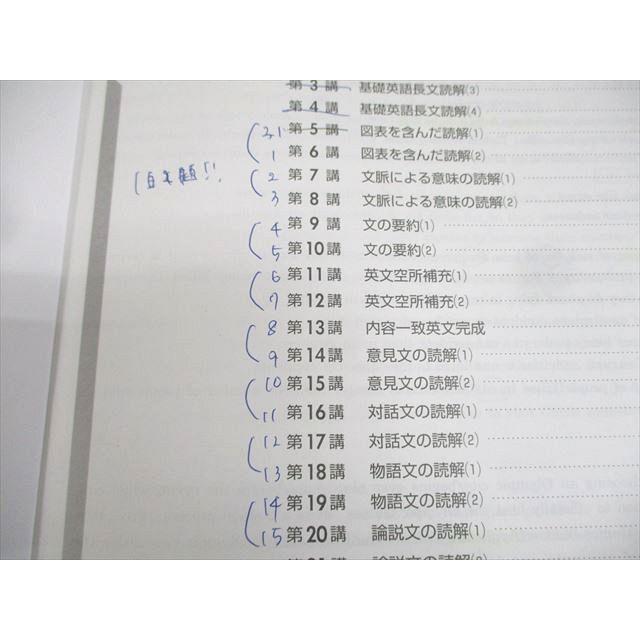 第3講 基礎英語長文読解(3)
第4講 基礎英語長文読解(4)
第5講 図表を含んだ読解(1)
1 第6講 図表を含んだ読解(2)
2 第7講 文脈による意味の読解(1)
3 第8講 文脈による意味の読解(2)
4 第9講 文の要約(1)
5 第10講 文の要約(2)
6 第11講 英文空所補充(1)
7 第12講 英文空所補充(2)
8 第13講 内容一致英文完成
9 第14講 意見文の読解(1)
10 第15講 意見文の読解(2)
11 第16講 対話文の読解(1)
12 第17講 対話文の読解(2)
13 第18講 物語文の読解(1)
14 第19講 物語文の読解(2)
15 第20講 論説文の読解(1)